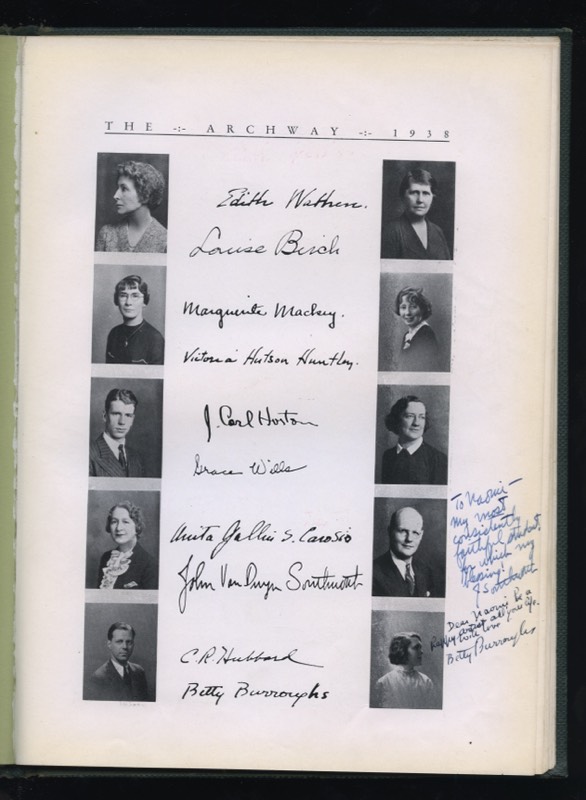 THE -:- ARCHWAY -:- 1938
Edith Wathen.
Louise Birch
Marguerite Mackey.
Victoria Hutson Huntley.
J. Carl Horton
Grace Wills
Anita Gallin S. Carosio
John Van Druyn Southworth
C. R. Hubbard
Betty Burroughs
To Naomi -
my most
consistently
faithful student,
for which my
blessing!
J Southworth
Dear Naomi be a
happy artist all your life.
with love
Betty Burroughs